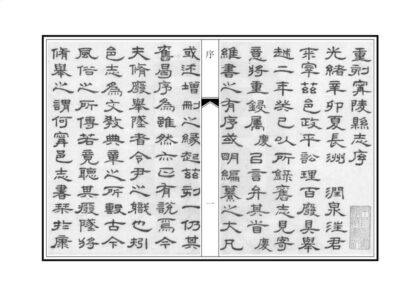 重刻寧陵縣志序
光緒辛卯夏長洲 潤泉汪君
來宰茲邑政平訟理百廢具舉
越二年癸巳以所錄舊志見寄
意將重錄屬 慶㠯言弁其耑 慶
維書之有序或明編纂之大凡
序
一
或述增刪之緣起茲刻一仍其
舊曷序為雖然亦有說焉今
夫脩廢舉墜者令尹之職也矧
邑志為文教典章之所繫古今
風俗之所傳若竟聽其廢墜將
脩舉之謂何寧邑志書栞於康